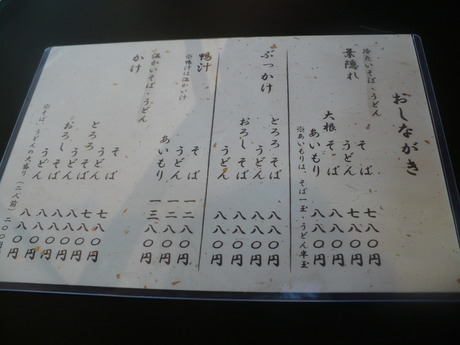 おしながき
冷たいそば・うどん
葉隠れ
そば 七八〇円
うどん 七八〇円
大根そば 八八〇円
あいもり 八八〇円
※あいもりは、そば一玉・うどん半玉
ぶっかけ
とろろそば 八八〇円
うどん 八八〇円
おろしそば 八八〇円
うどん 八八〇円
鴨汁
※鴨汁は温かい汁
そば 一二八〇円
うどん 一二八〇円
あいもり 一三八〇円
温かいそば・うどん
かけ
そば 七八〇円
うどん 七八〇円
とろろそば 八八〇円
うどん 八八〇円
おろしそば 八八〇円
うどん 八八〇円
※そば、うどんの大盛り(一二人前) 二〇〇円